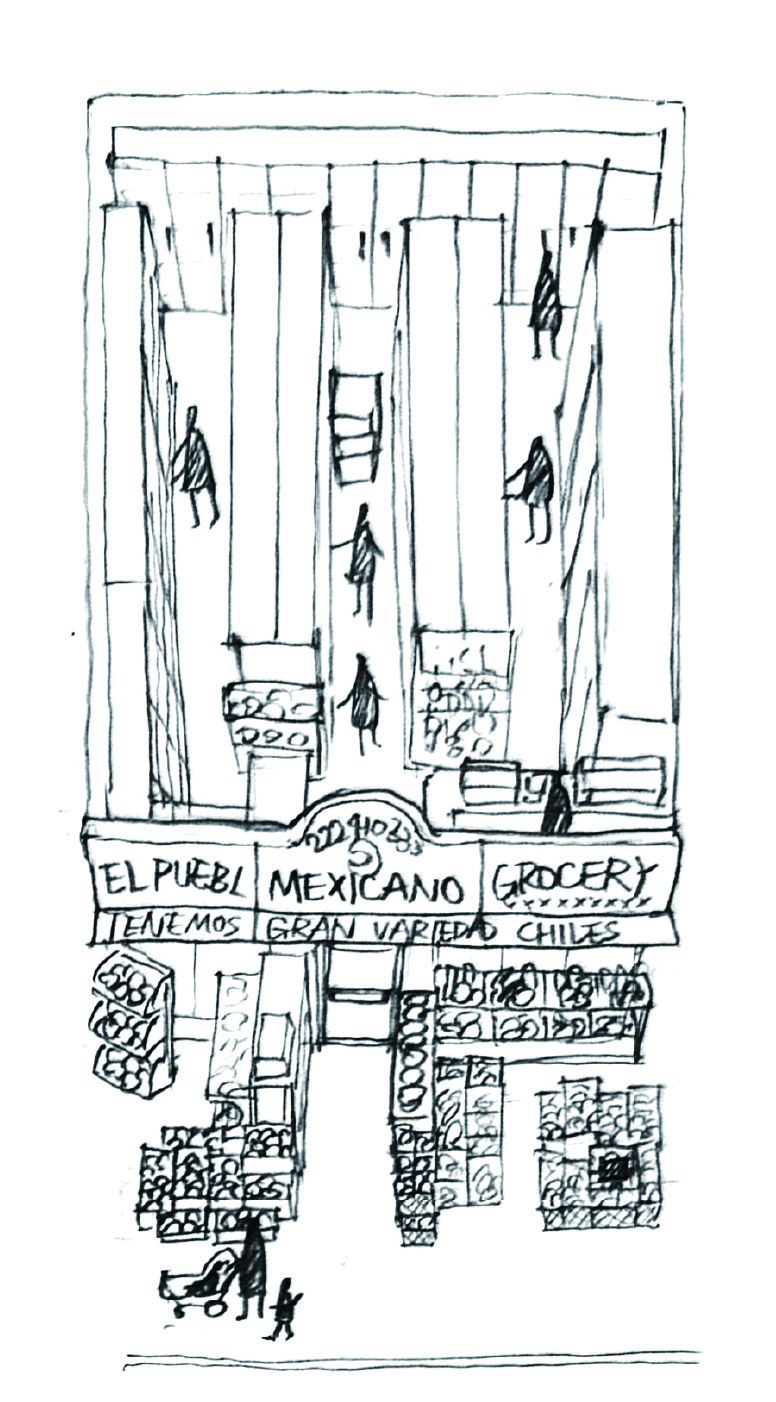 EL PUEBL MEXICANO GROCERY
TENEMOS GRAN VARIEDAD CHILES